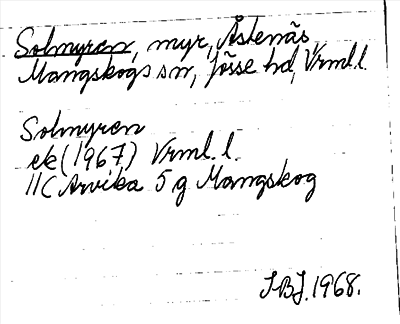 Solmyren, myr, Åstenäs,
Mangskogs sn, Jösse hd, Vrml. l.
Solmyren
ek (1967) Vrml. l.
11C Arvika 5 g Mangskog
SBJ. 1968.